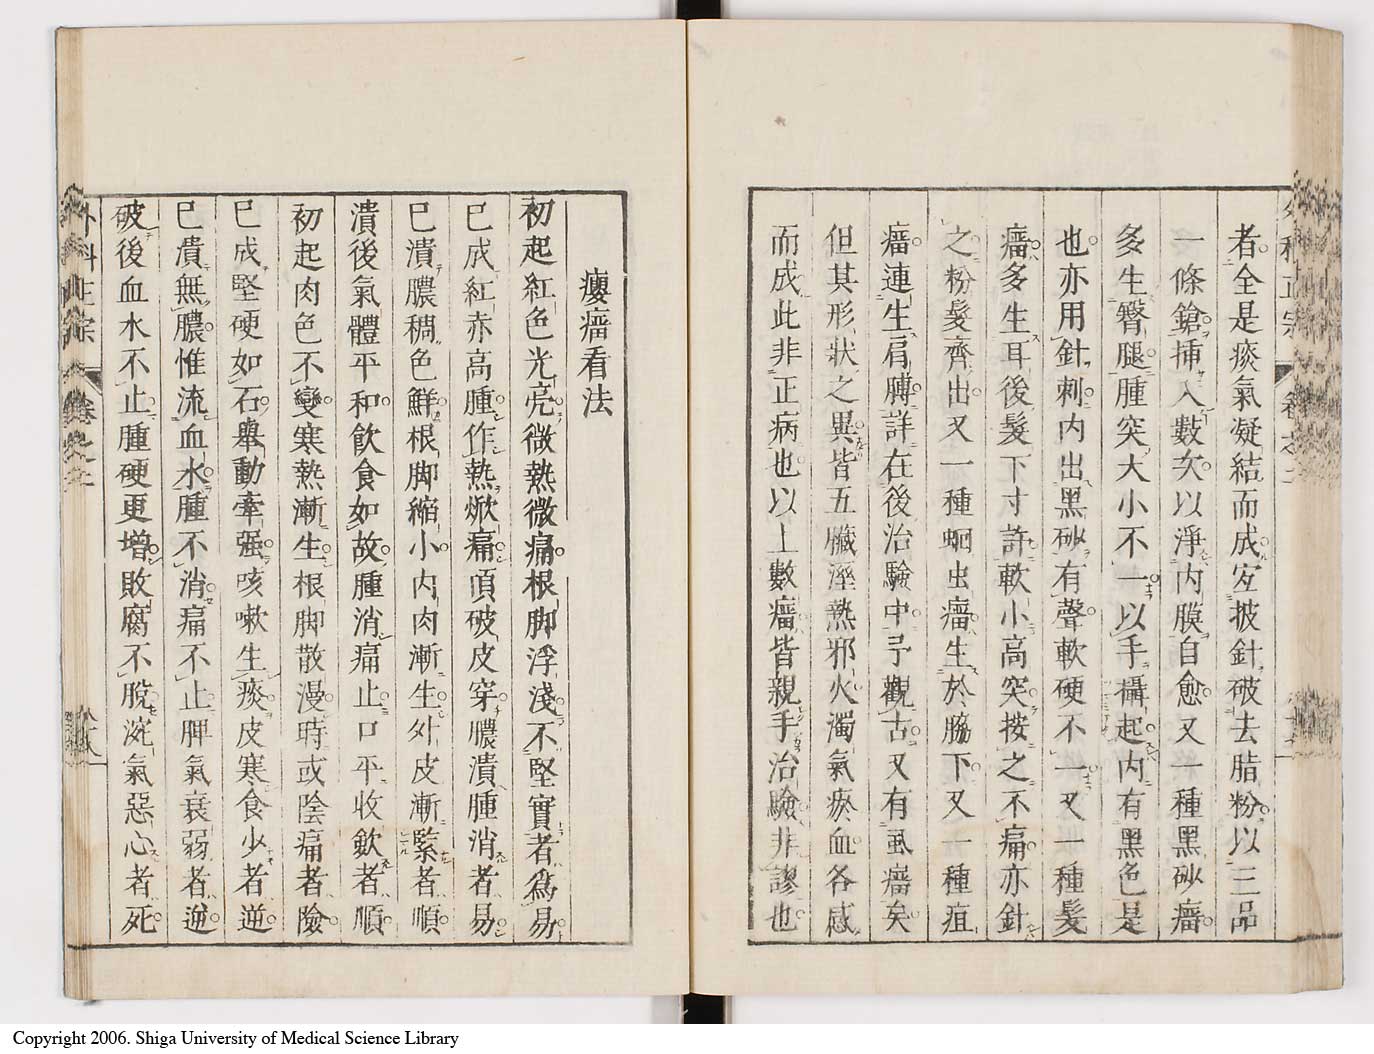 者全是痰氣凝結而成宜披針破去脂粉以三品
一條鎗挿入數次以淨内膜自愈又一種黑砂瘤
多生臀腿腫突大小不一以手攝起内有黑色是
也亦用針刺内出黑砂有聲軟硬不一又一種髮
瘤多生耳後髮下寸許軟小高突按之不痛亦針
之粉髮齊出又一種蛔虫瘤生於脇下又一種疽
瘤連生肩膊詳在後治驗中予觀古又有虱瘤矣
但其形狀之異皆五臟溼熱邪火濁氣瘀血各感
而成此非正病也以上數瘤皆親手治驗非謬也
癭瘤看法
初起紅色光亮微熱微痛根脚浮淺不堅實者爲易
已成紅赤高腫作熱焮痛頂破皮穿膿潰腫消者易
已潰膿稠色鮮根脚縮小内肉漸生外皮漸緊者順
潰後氣體平和飮食如故腫消痛止口平收歛者順
初起肉色不變寒熱漸生根脚散漫時或陰痛者險
已成堅硬如石舉動牽强咳嗽生痰皮寒食少者逆
已潰無膿惟流血水腫不消痛不止脾氣衰弱者逆
破後血水不止腫硬更增敗腐不脫溌氣惡心者死
外科正宗
Copyright 2006. Shiga University of Medical Science Library